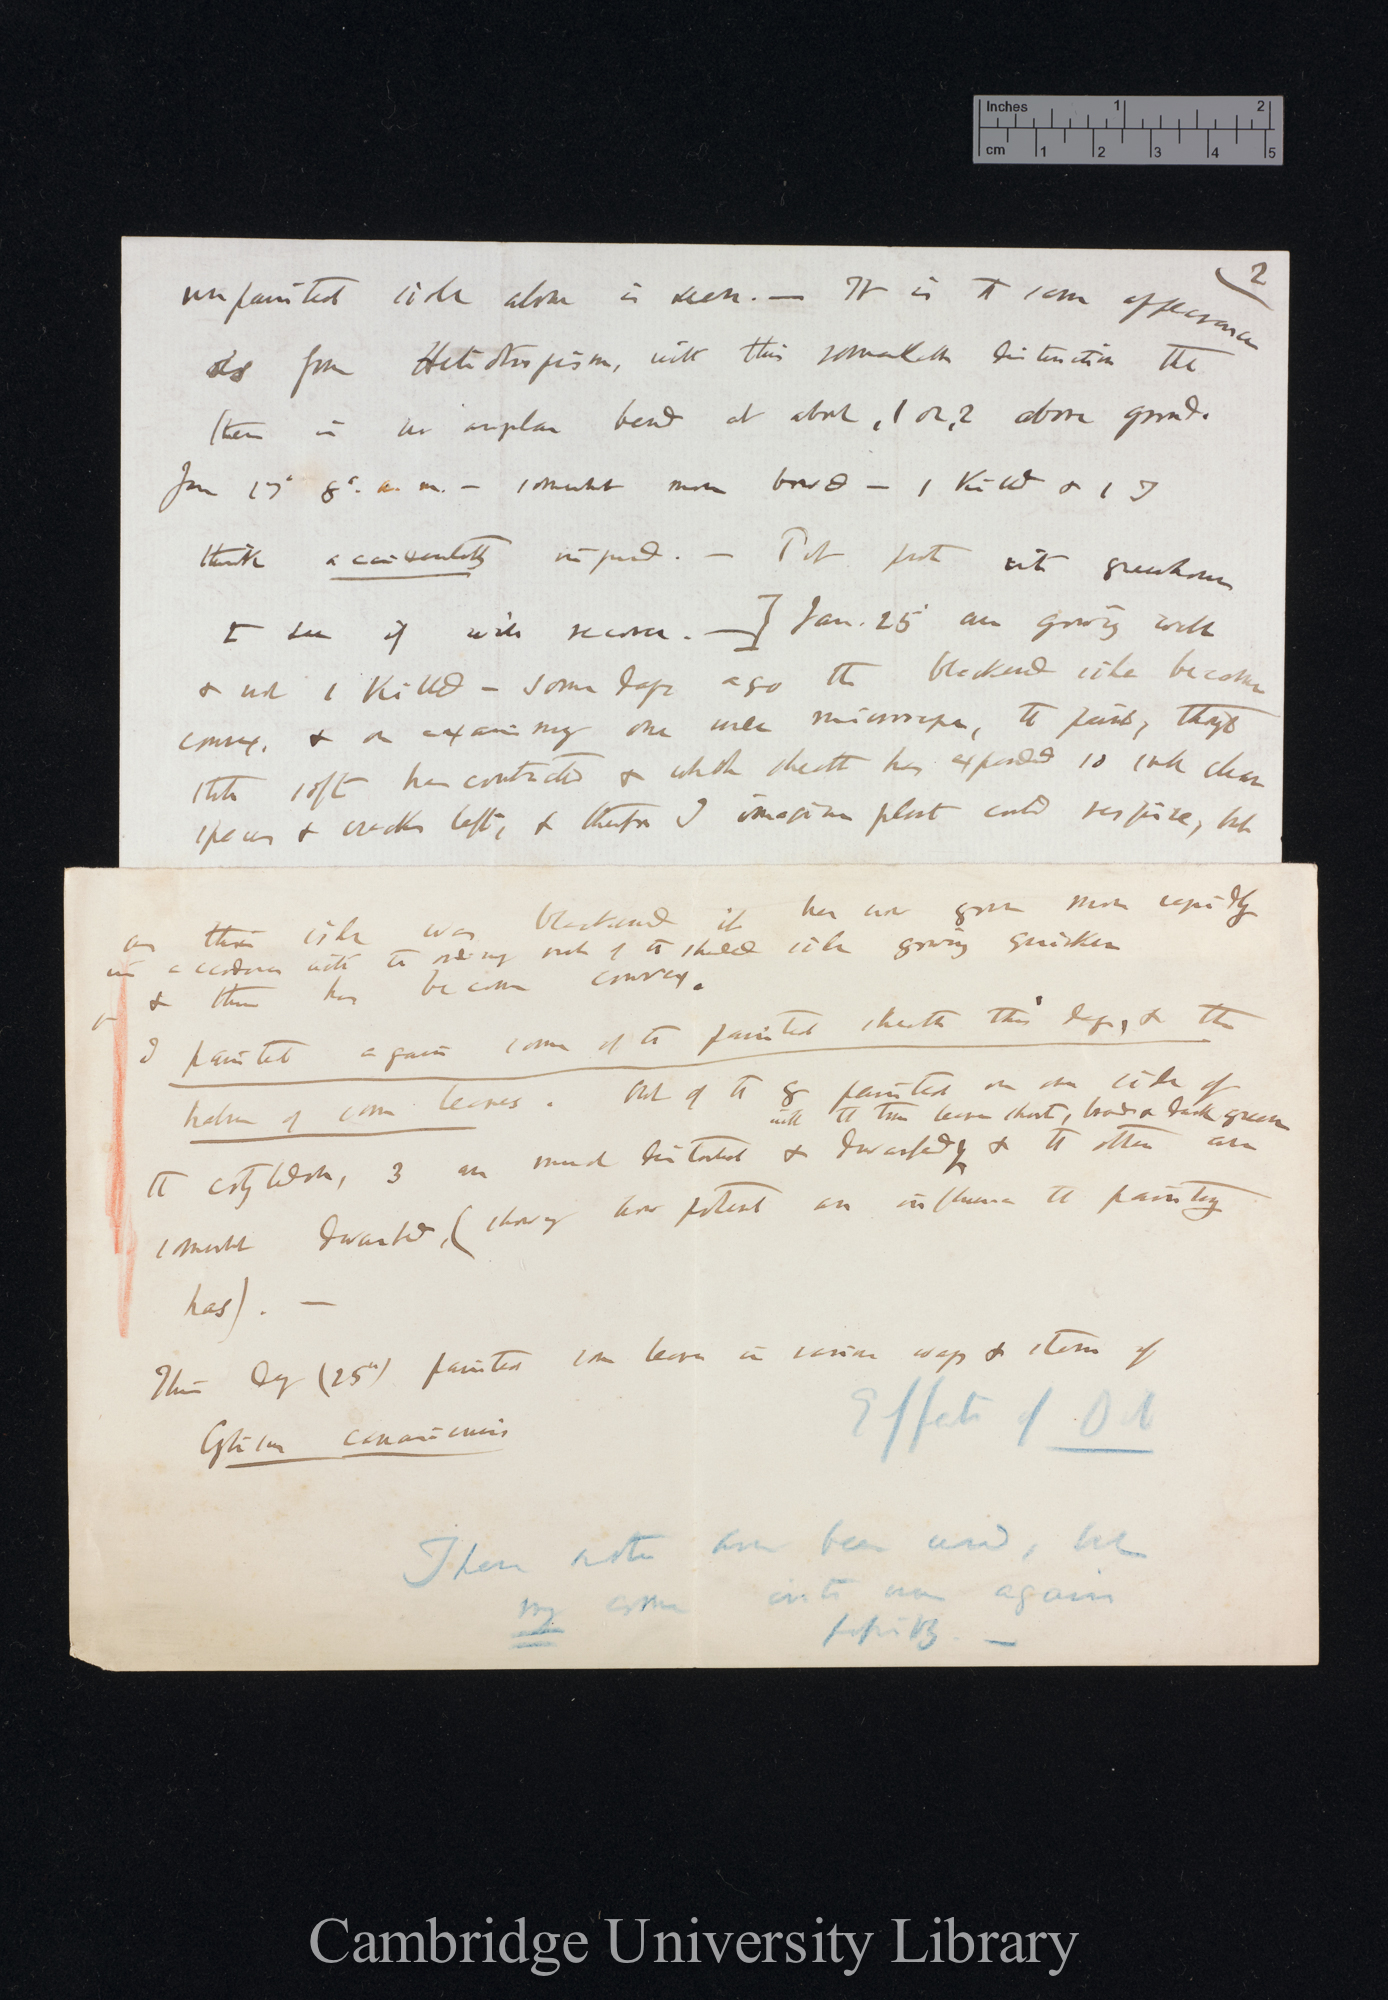 Inches 1 2
cm 1 2 3 4 5
2
unpainted side alone is seen. — It is the same appearance
as from Heliotropism, with this remarkable distinction that
there is no angular bend at about 1 or 2 above ground.
Jan 17' 8°. a. m. — somewhat more bowed — 1 killed & 1 I
think accidentally injured. — Pot put into greenhouse
to see if will recover. —] Jan. 25' are growing well
& not 1 killed — Some days ago the blackened side became
convex, & on examining one under microscope, the paint, though
still soft has contracted & whole sheath has expanded so such clear
spaces & cracks left, & therefore I imagine plant could respire, but
as this side was blackened it has now grown more rapidly
in accordance with the ordinary rule of the shaded side growing quicker
& thus has become convex.
I painted again some of the painted sheaths this day, & the
halves of some leaves. Out of the 8 painted on one side of
with the true leaves short, broad & dark green
the cotyledon, 3 are much distorted & dwarfed, & the others are
somewhat dwarfed, (showing how potent an influence the painting
has). —
This day (25th) painted some leaves in various ways & stems of
Cytisus canariensis
Effects of Oil
These notes have been used, but
my come into use again
possibly. —
Cambridge University Library